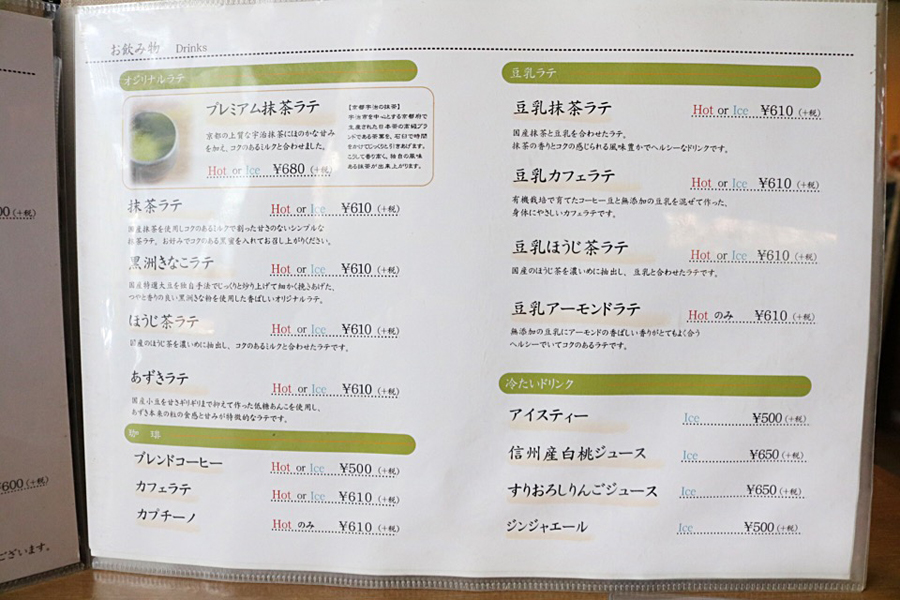 お飲み物 Drinks
オジリナルラテ
プレミアム抹茶ラテ
京都の上質な宇治抹茶にほのかな甘み
を加え、コクのあるミルクと合わせました。
Hot or Ice ¥680 (+税)
【京都宇治の抹茶】
宇治市を中心とする京都府で
生産された日本茶の高級ブラ
ンドである茶葉を、石臼で時間
をかけてじっくりと引きあげます。
こうして香り高く、独自の風味
ある抹茶が出来上がります。
抹茶ラテ Hot or Ice ¥610 (+税)
国産抹茶を使用しコクのあるミルクで割った甘さのないシンプルな
抹茶ラテ。お好みでコクのある黒蜜を入れてお召し上がりください。
黒洲きなこラテ Hot or Ice ¥610 (+税)
国産特選大豆を独自手法でじっくりと炒り上げて細かく挽きあげた、
つやと香りの良い黒洲きな粉を使用した香ばしいオリジナルラテ。
ほうじ茶ラテ Hot or Ice ¥610 (+税)
国産のほうじ茶を濃いめに抽出し、コクのあるミルクと合わせたラテです。
あずきラテ Hot or Ice ¥610 (+税)
国産小豆を甘さギリギリまで抑えて作った低糖あんこを使用し、
あずき本来の粒の食感と甘みが特徴的なラテです。
珈琲
ブレンドコーヒー Hot or Ice ¥500 (+税)
カフェラテ Hot or Ice ¥610 (+税)
カプチーノ Hot のみ ¥610 (+税)
豆乳ラテ
豆乳抹茶ラテ Hot or Ice ¥610 (+税)
国産抹茶と豆乳を合わせたラテ。
抹茶の香りとコクの感じられる風味豊かでヘルシーなドリンクです。
豆乳カフェラテ Hot or Ice ¥610 (+税)
有機栽培で育てたコーヒー豆と無添加の豆乳を混ぜて作った、
身体にやさしいカフェラテです。
豆乳ほうじ茶ラテ Hot or Ice ¥610 (+税)
国産のほうじ茶を濃いめに抽出し、豆乳と合わせたラテです。
豆乳アーモンドラテ Hot のみ ¥610 (+税)
無添加の豆乳にアーモンドの香ばしい香りがとてもよく合う
ヘルシーでいてコクのあるラテです。
冷たいドリンク
アイスティー Ice ¥500 (+税)
信州産白桃ジュース Ice ¥650 (+税)
すりおろしりんごジュース Ice ¥650 (+税)
ジンジャエール Ice ¥500 (+税)
00 (+税)
¥600 (+税)
ございます。